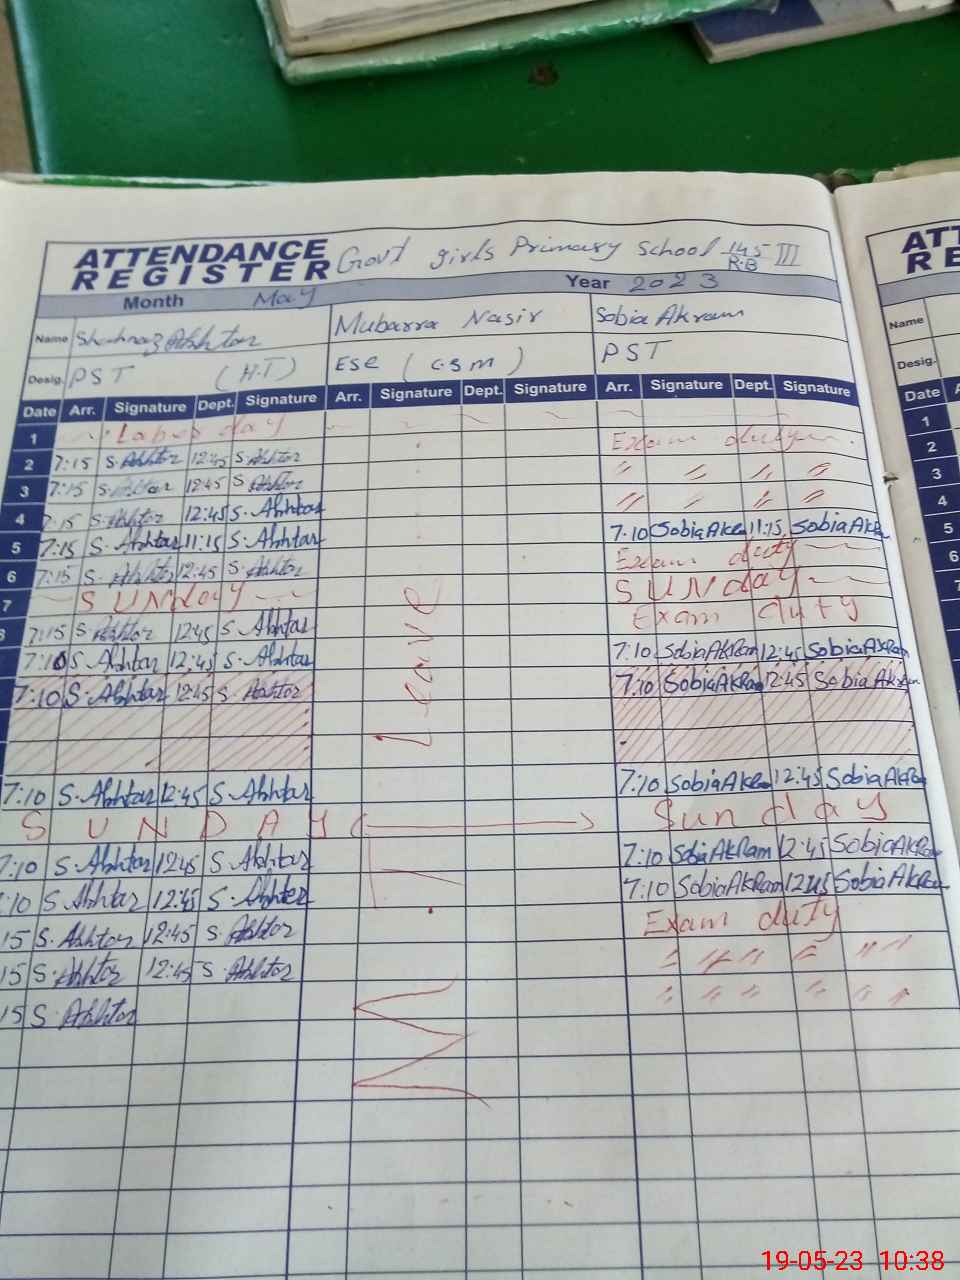 ATTENDANCE REGISTER Govt girls Primary School 145 R.B III
Month May Year 2023
Name Shahnaz Akhtar Mubarra Nasir Sobia Akram
Desig. PST (H.T) ESE ( PST
Date Arr. Signature Dept. Signature Arr. Signature Dept. Signature Arr. Signature Dept. Signature
1 Labor day
2 7:15 S. Akhtar 12:45 S. Akhtar Exam duty
3 7:15 S. Akhtar 12:45 S. Akhtar " " " "
4 7:15 S. Akhtar 12:45 S. Akhtar " " " "
5 7:15 S. Akhtar 11:15 S. Akhtar 7:10 Sobia Akram 11:15 Sobia Akram
6 7:15 S. Akhtar 12:45 S. Akhtar Exam duty
7 SUNday SUNday
8 7:15 S. Akhtar 12:45 S. Akhtar Exam duty
7:10 S. Akhtar 12:45 S. Akhtar 7:10 Sobia AkRam 12:45 Sobia AkRam
7:10 S. Akhtar 12:45 S. Akhtar 7:10 Sobia AkRam 12:45 Sobia Akram
Leave
7:10 S. Akhtar 12:45 S. Akhtar 7:10 Sobia AkRam 12:45 Sobia AkRam
SUNDAY Sunday
7:10 S. Akhtar 12:45 S. Akhtar 7:10 Sobia AkRam 12:45 Sobia AkRam
:10 S. Akhtar 12:45 S. Akhtar 7:10 Sobia AkRam 12:45 Sobia AkRam
15 S. Akhtar 12:45 S. Akhtar Exam duty
15 S. Akhtar 12:45 S. Akhtar " " " " "
15 S. Akhtar " " " " "
M
ATT
RE
Name
Desig.
Date A
1
2
3
4
5
6
7
19-05-23 10:38